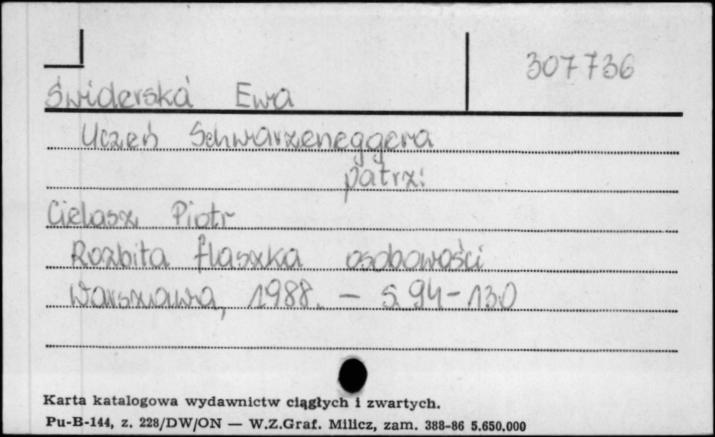 307736
Świderska Ewa
Uczeń Schwarzeneggera
patrz:
Cielasz Piotr
Rozbita flaszka osobowości
Warszawa, 1988. – S. 94-130
Karta katalogowa wydawnictw ciągłych i zwartych.
Pu-B-144, z. 228/DW/ON — W.Z.Graf. Milicz, zam. 388-86 5.650.000